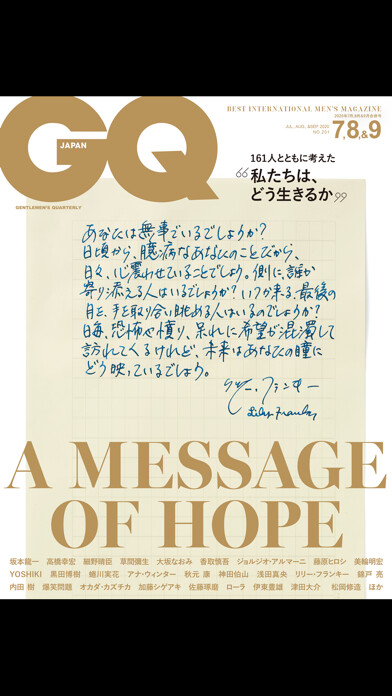 GQ
JAPAN
GENTLEMEN'S QUARTERLY
BEST INTERNATIONAL MEN'S MAGAZINE
JUL., AUG., &SEP. 2020
NO.201
7,8,&9
161人とともに考えた
“私たちは、
どう生きるか”
あなたは無事でいるでしょうか?
日頃から、臆病なあなたのことだから、
日々、心震わせていることでしょう。側に、誰か
寄り添える人はいるでしょうか?いつか来る、最後の
月を、手を取り合い眺める人はいるのでしょうか?
日毎、恐怖や憤り、呆れに希望が混濁して
訪れてくるけれど、未来はあなたの瞳に
どう映っているでしょう。
リリー・フランキー
Lily Franky
A MESSAGE
OF HOPE
坂本龍一 高橋幸宏 細野晴臣 草間彌生 大坂なおみ 香取慎吾 ジョルジオ・アルマーニ 藤原ヒロシ 美輪明宏
YOSHIKI 黒田博樹 蜷川実花 アナ・ウィンター 秋元 康 神田伯山 浅田真央 リリー・フランキー 錦戸 亮
内田 樹 爆笑問題 オカダ・カズチカ 加藤シゲアキ 佐藤琢磨 ローラ 伊東豊雄 津田大介 松岡修造 ほか